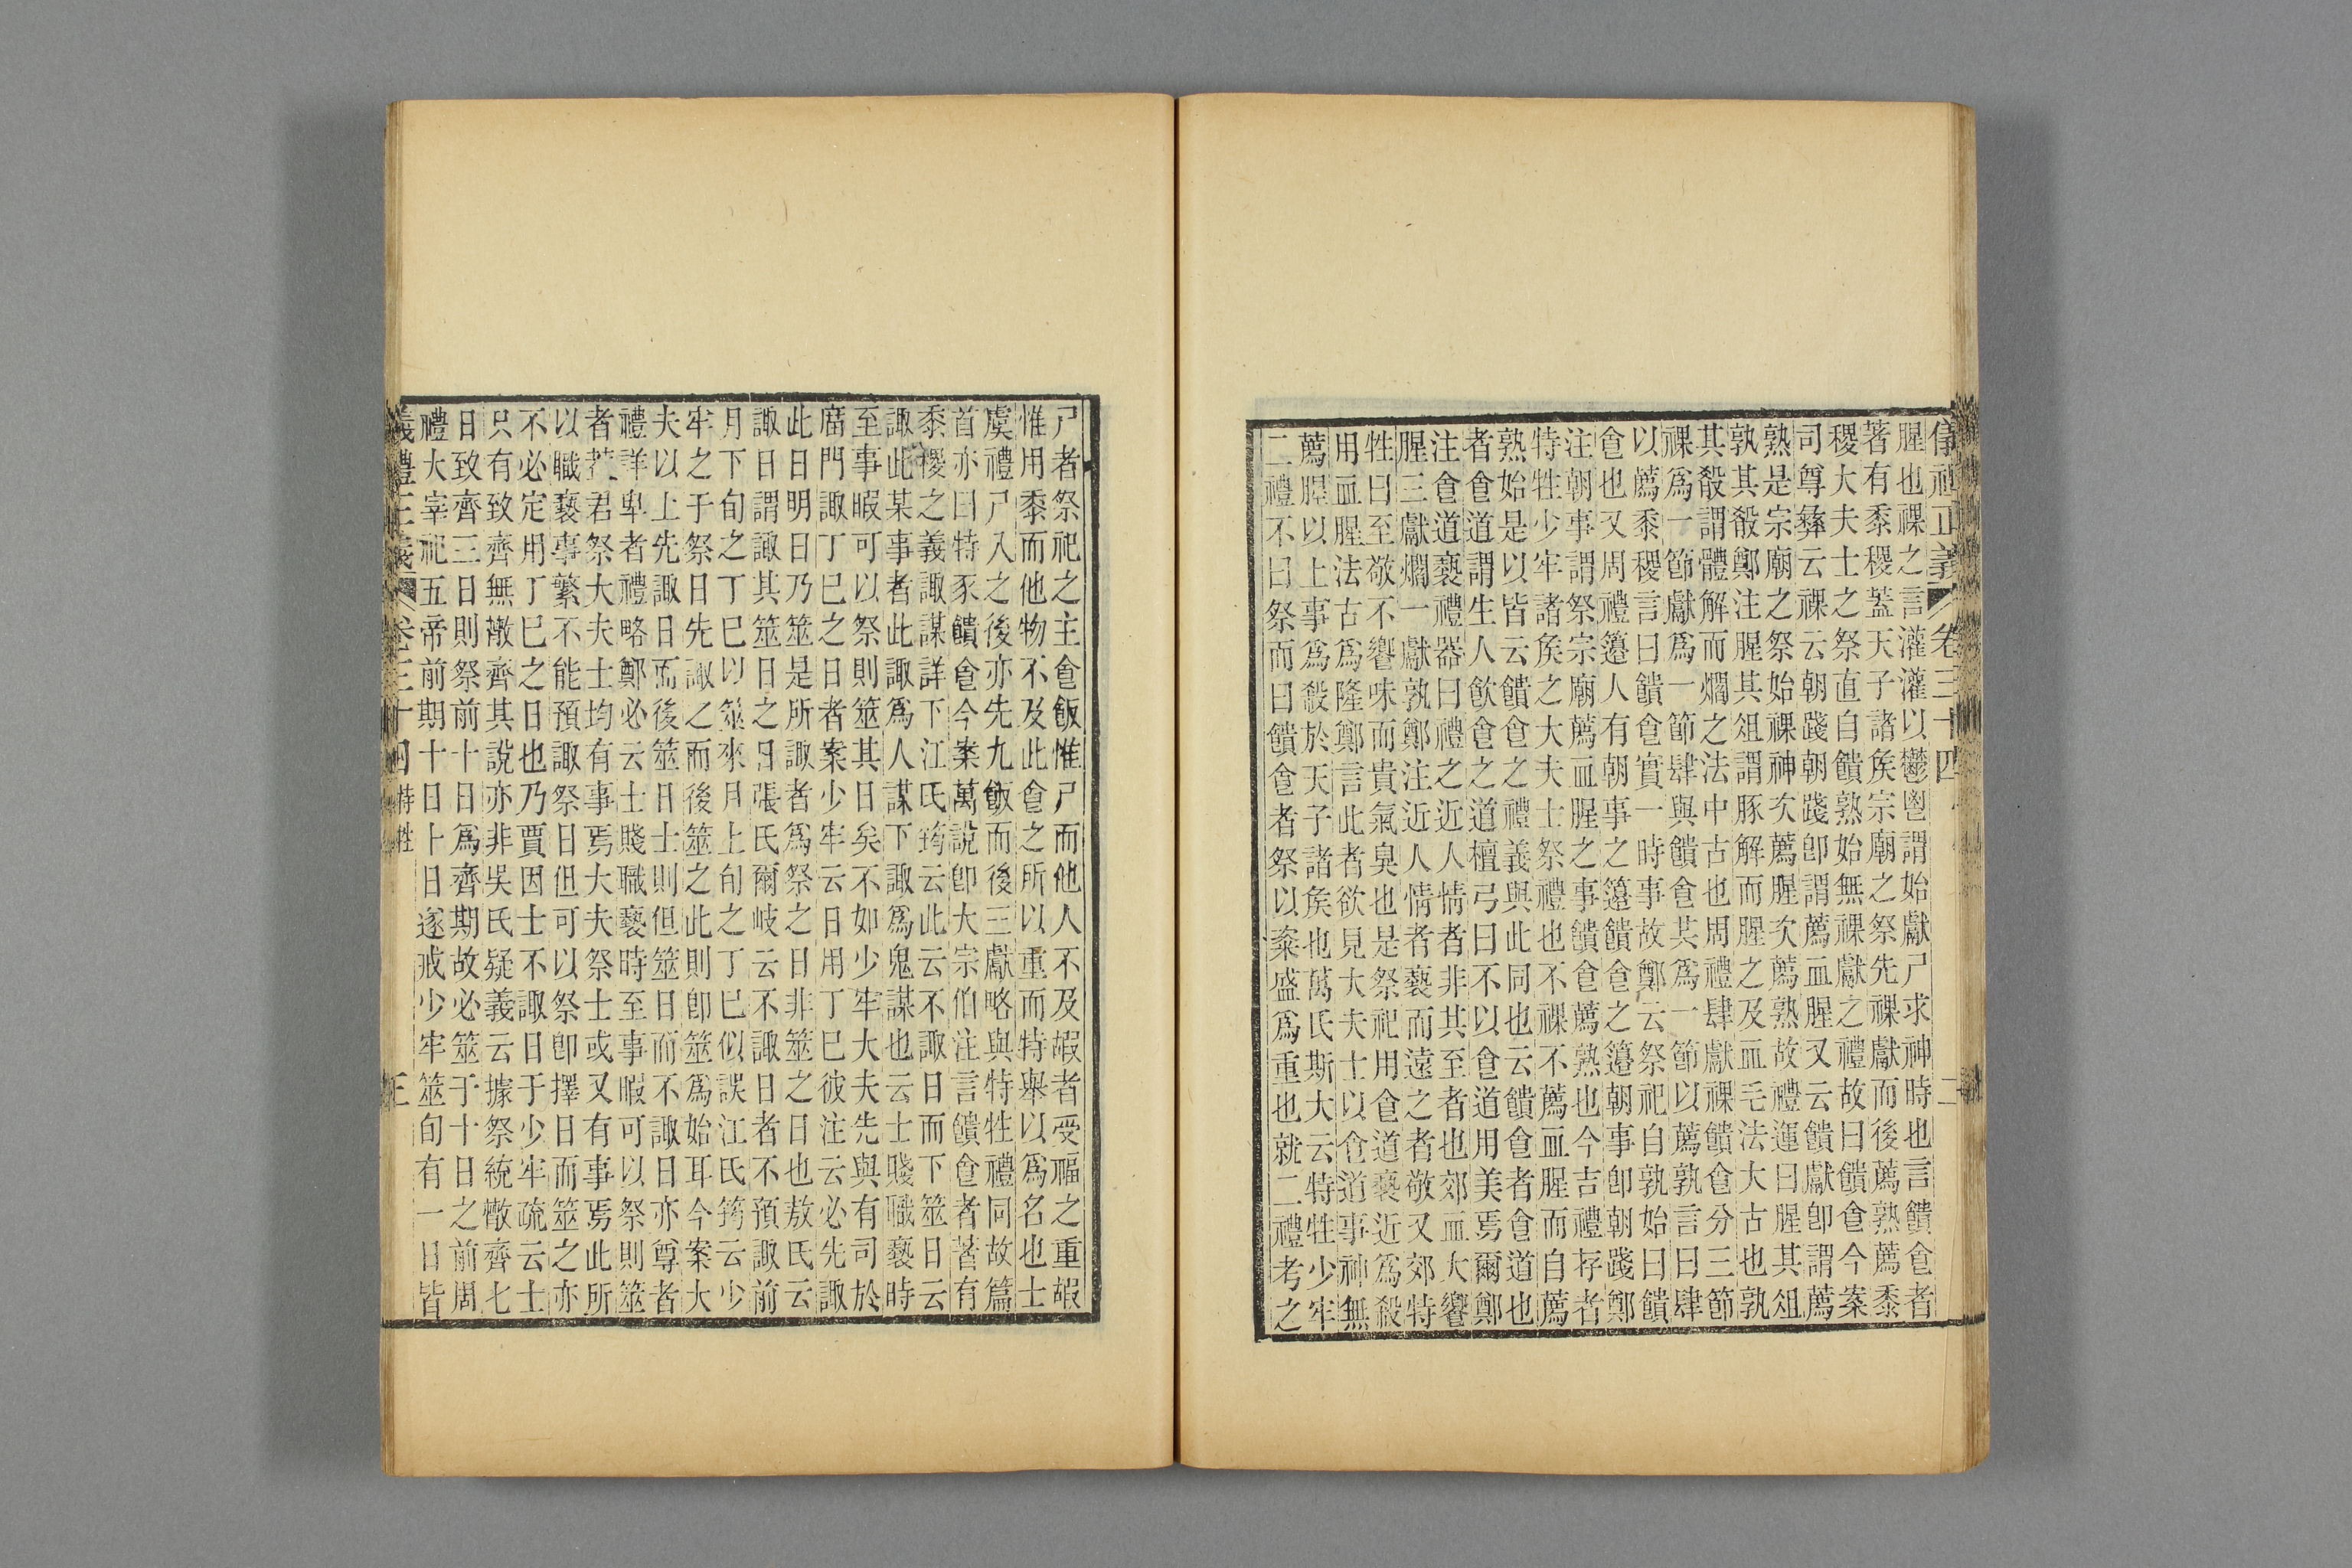 儀禮正義 卷三十四 二
腥也祼之言灌灌以鬱鬯謂始獻尸求神時也言饋食者
著有黍稷葢天子諸矦宗廟之祭先祼獻而後薦熟薦黍
稷大夫士之祭直自饋熟始無祼獻之禮故曰饋食今案
司尊彝云祼云朝踐朝踐卽謂薦血腥又云饋獻卽謂薦
熟是宗廟之祭始祼神次薦腥次薦熟故禮運曰腥其俎
孰其殽鄭注腥其俎謂豚解而腥之及血毛法大古也孰
其殽謂體解而爓之法中古也周禮肆獻祼饋食分三節
祼爲一節獻爲一節肆與饋食共爲一節以薦孰言曰肆
以薦黍稷言曰饋食實一時事故鄭云祭祀自孰始曰饋
食也又周禮籩人有朝事之籩饋食之籩朝事卽朝踐鄭
注朝事謂祭宗廟薦血腥之事饋食薦熟也今吉禮存者
特牲少牢諸矦之大夫士祭禮也不祼不薦血腥而自薦
熟始是以皆云饋食之禮義與此同也云饋食者食道也
者食道謂生人飲食之道檀弓曰不以食道用美焉爾鄭
注食道褻禮器曰禮之近人情者非其至者也郊血大饗
腥三獻爓一獻孰鄭注近人情者褻而遠之者敬又郊特
牲曰至敬不饗味而貴氣臭也是祭祀用食道褻近爲殺
用血腥法古爲隆鄭言此者欲見大夫士以食道事神無
薦腥以上事爲殺於天子諸矦也萬氏斯大云特牲少牢
二禮不曰祭而曰饋食者祭以粢盛爲重也就二禮考之
尸者祭祀之主食飯惟尸而他人不及嘏者受福之重嘏
惟用黍而他物不及此食之所以重而特舉以爲名也士
虞禮尸入之後亦先九飯而後三獻略與特牲禮同故篇
首亦曰特豕饋食今案萬說卽大宗伯注言饋食者著有
黍稷之義諏謀詳下江氏筠云此云不諏日而下筮日云
諏此某事者此諏爲人謀下諏爲鬼謀也云士賤職褻時
至事暇可以祭則筮其日矣不如少牢大夫先與有司於
廟門諏丁巳之日者案少牢云日用丁巳彼注云必先諏
此日明日乃筮是所諏者爲祭之日非筮之日也敖氏云
諏日謂諏其筮日之日張氏爾岐云不諏日者不預諏前
月下旬之丁巳以筮來月上旬之丁巳似誤江氏筠云少
牢之于祭日先諏之而後筮之此則卽筮爲始耳今案大
夫以上先諏日而後筮日士則但筮日而不諏日亦尊者
禮詳卑者禮略鄭必云士賤職褻時至事暇可以祭則筮
者君祭大夫士均有事焉大夫祭士或又有事焉此所
以職褻事繁不能預諏祭日但可以祭卽擇日而筮之亦
不必定用丁巳之日也乃賈因士不諏日于少牢疏云士
只有致齊無散齊其說亦非吳氏疑義云據祭統散齊七
日致齊三日則祭前十日爲齊期故必筮于十日之前周
禮大宰祀五帝前期十日十日遂戒少牢筮旬有一日皆
義禮正義 卷三十四 特牲 三